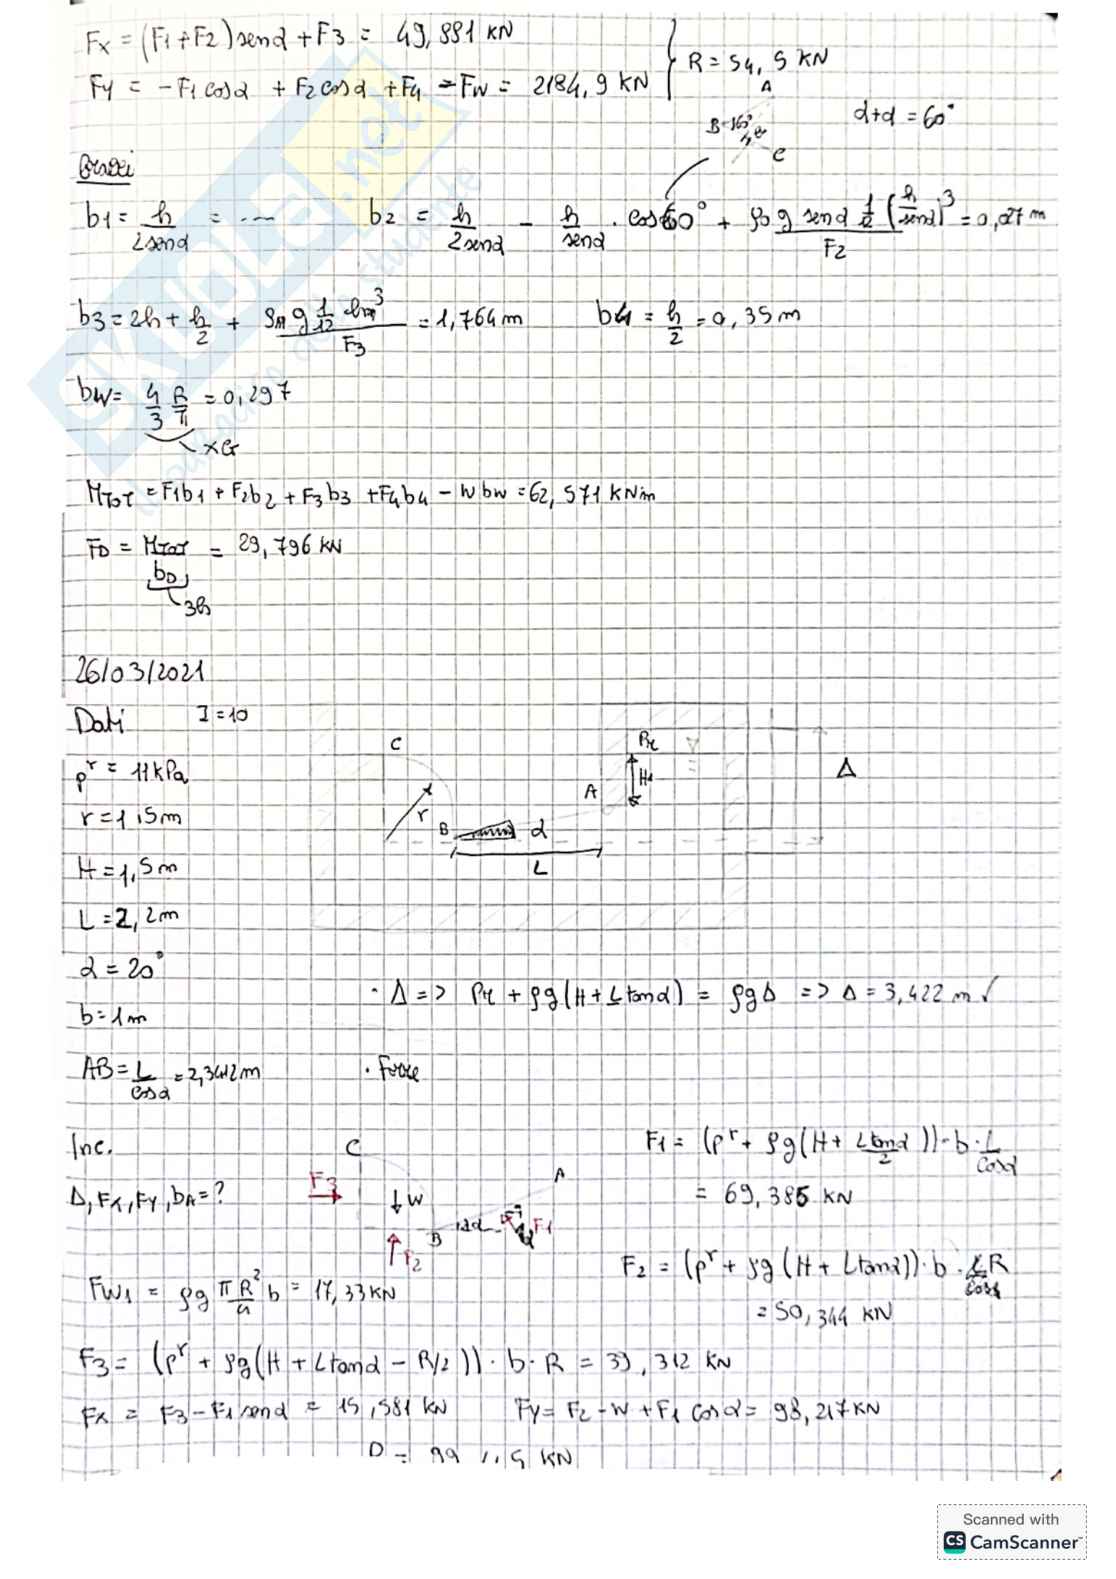 Fx = (F1+F2) senα + F3 = 49,881 kN
Fy = -F1 cosα + F2 cosα + F4 - Fw = 2184,9 kN
R = 54,5 kN
A
B=160°
C
α+α = 60°
Bracci
b1 = h/(2senα) = ....
b2 = h/(2senα) - h/senα · cos60° + ρo g senα 1/12 (h/senα)^3 / F2 = 0,27 m
b3 = 2h + h/2 + ρm g 1/12 bh^3 / F3 = 1,764 m
b4 = h/2 = 0,35 m
bw = 4/3 R/π = 0,297
xG
MTOT = F1b1 + F2b2 + F3b3 + F4b4 - W bw = 62,571 kNm
FD = MTOT/bD = 29,796 kN
3h
26/03/2021
Dati I=10
p^r = 11 kPa
r = 1,5m
H = 1,5m
L = 2,2m
α = 20°
b = 1m
AB = L/cosα = 2,3412m
C
r
B
α
L
A
Pr
H
Δ
· Δ => Pr + ρg(H + L tanα) = ρgΔ => Δ = 3,422 m ✓
· Forze
Inc.
Δ, Fx, Fy, bA = ?
C
F3
↓W
F2
B
A
F1
F1 = (p^r + ρg(H + L tanα/2)) · b · L/cosα
= 69,385 kN
F2 = (p^r + ρg(H + L tanα)) · b · R
= 50,344 kN
Fw1 = ρg πR²/4 b = 17,33 kN
F3 = (p^r + ρg(H + L tanα - R/2)) · b · R = 39,312 kN
Fx = F3 - F1 senα = 15,581 kN
Fy = F2 - W + F1 cosα = 98,217 kN
Scanned with
CS CamScanner